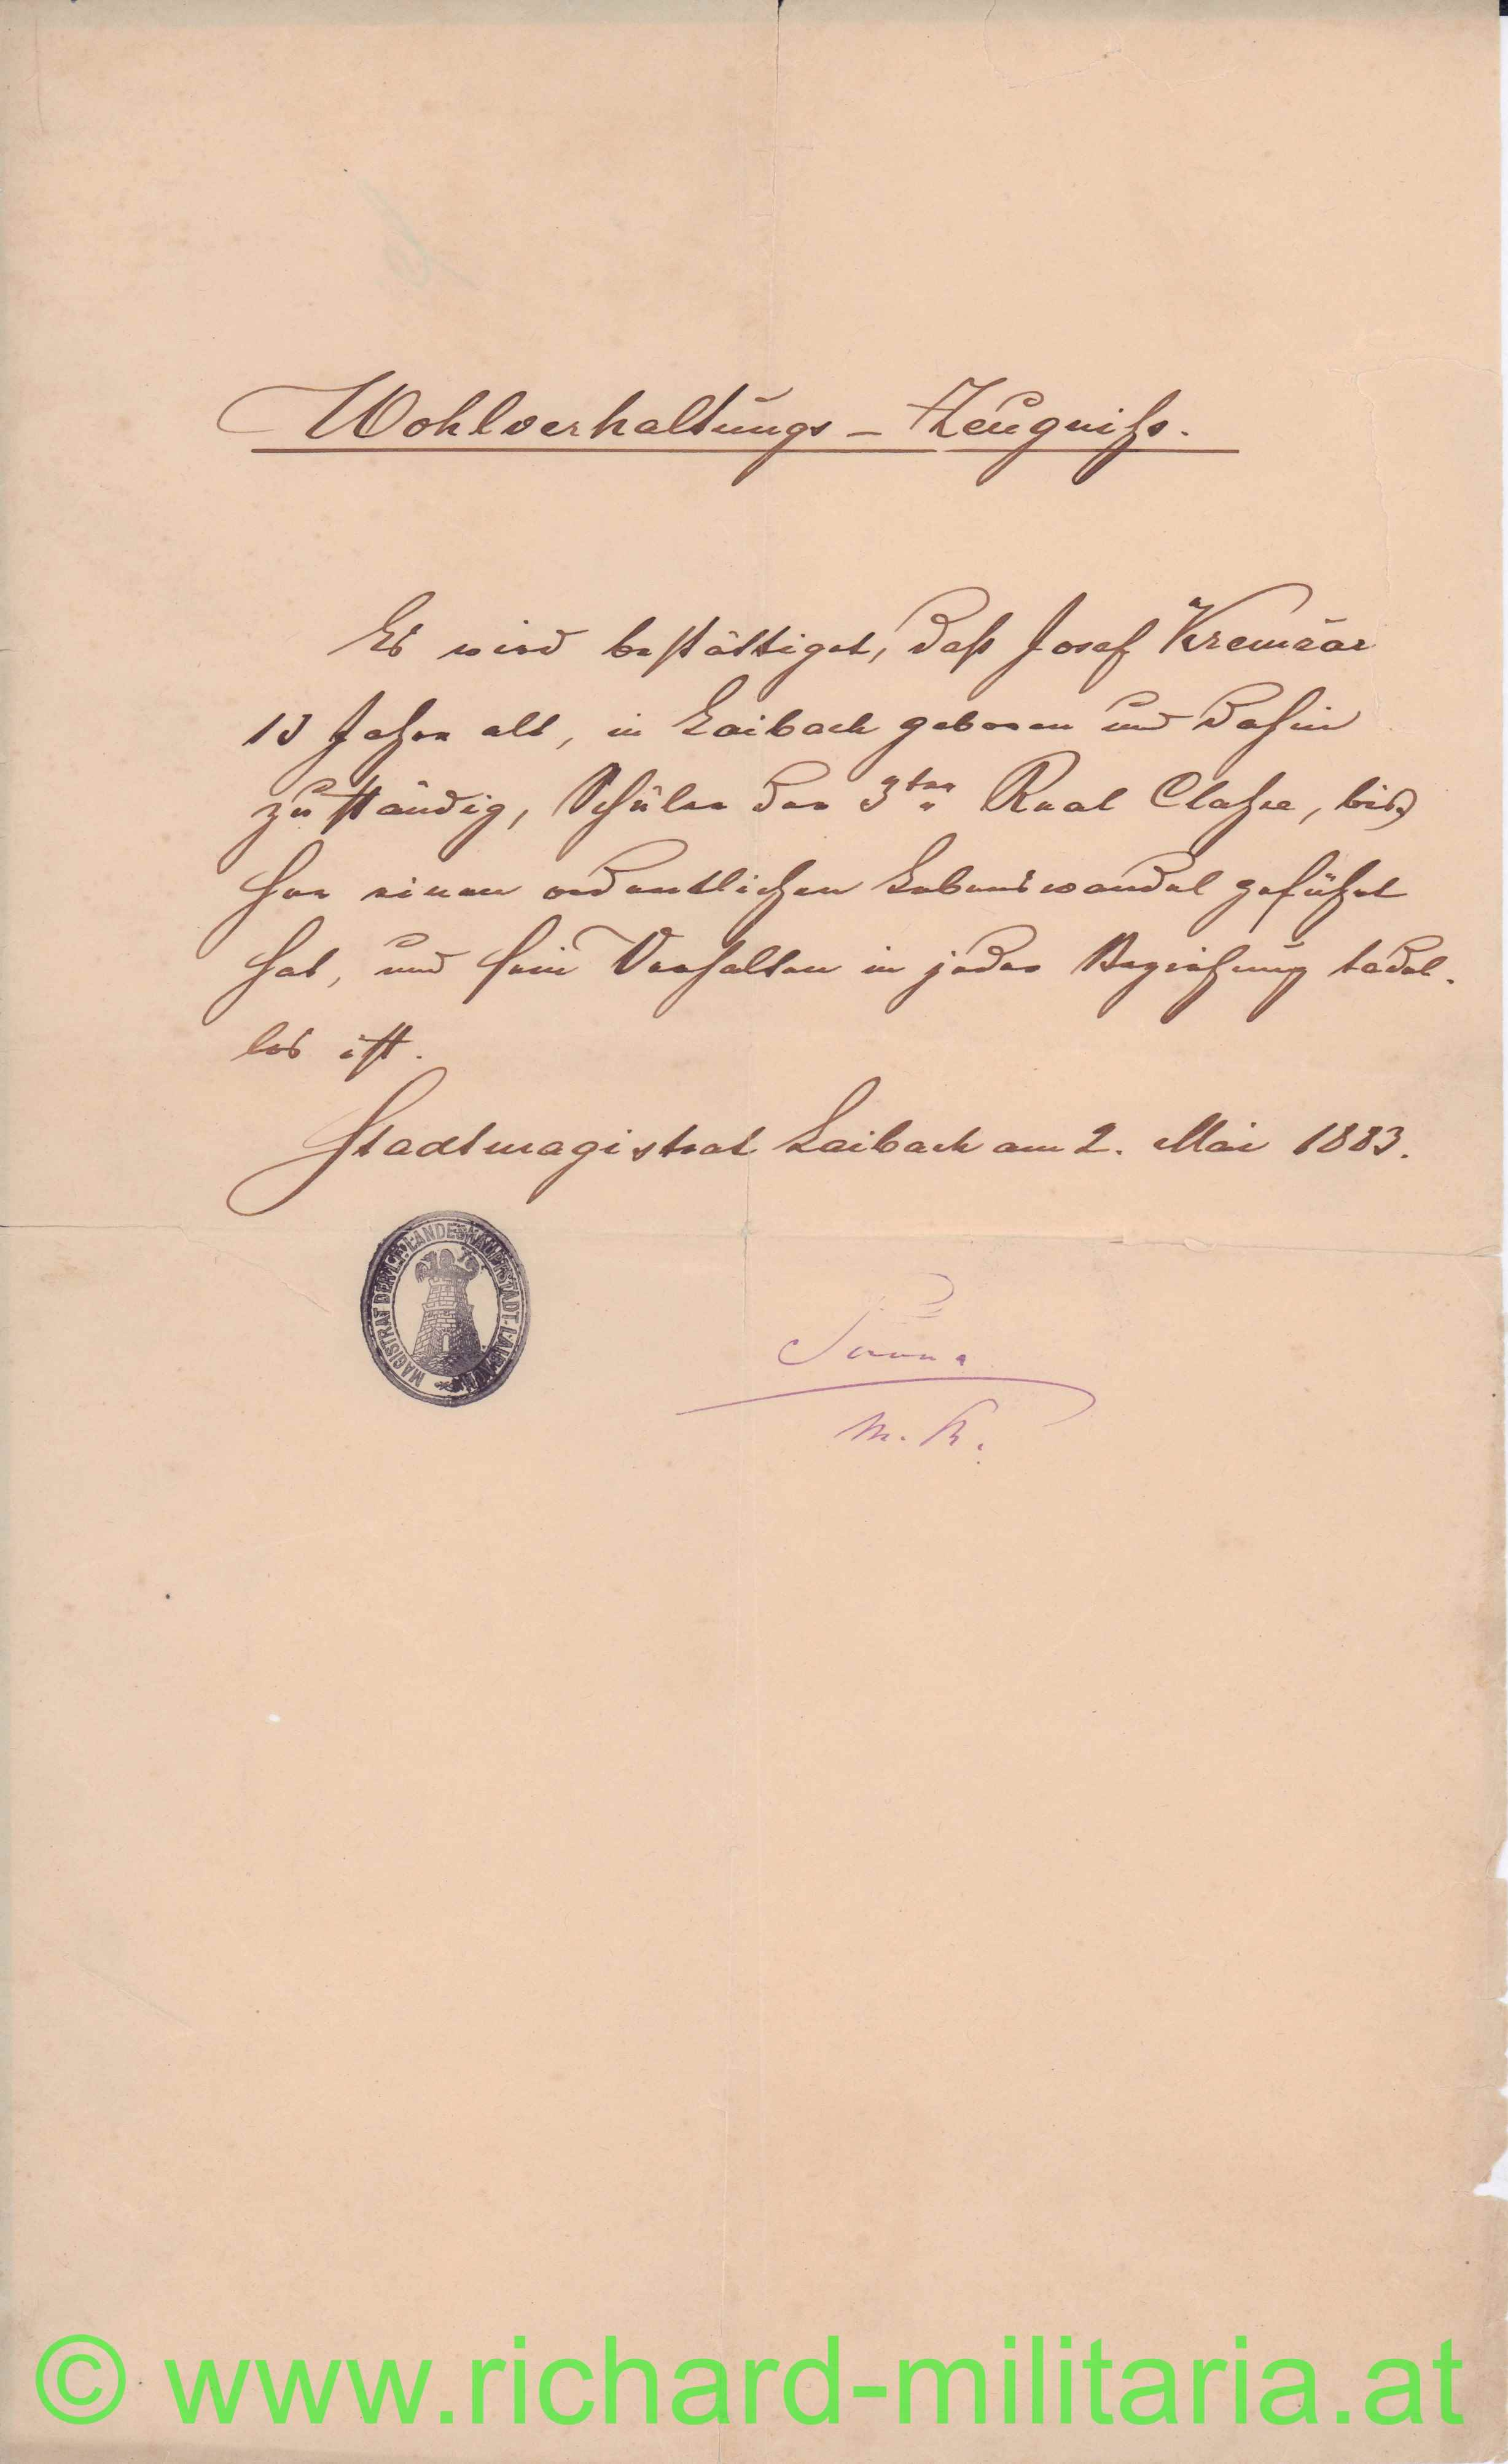 Wohlverhaltungs – Zeugniß.
Es wird bestättiget, daß Josef Kremžar
13 Jahre alt, in Laibach geboren und dahin
zuständig, Schüler der 3ten Real Claße, bis¬
her einen ordentlichen Lebenswandel geführt
hat, und sein Verhalten in jeder Beziehung tadel-
los ist.
Stadtmagistrat Laibach am 2. Mai 1883.
MAGISTRAT DER K. K. LANDESHAUPTSTADT LAIBACH
© www.richard-militaria.at